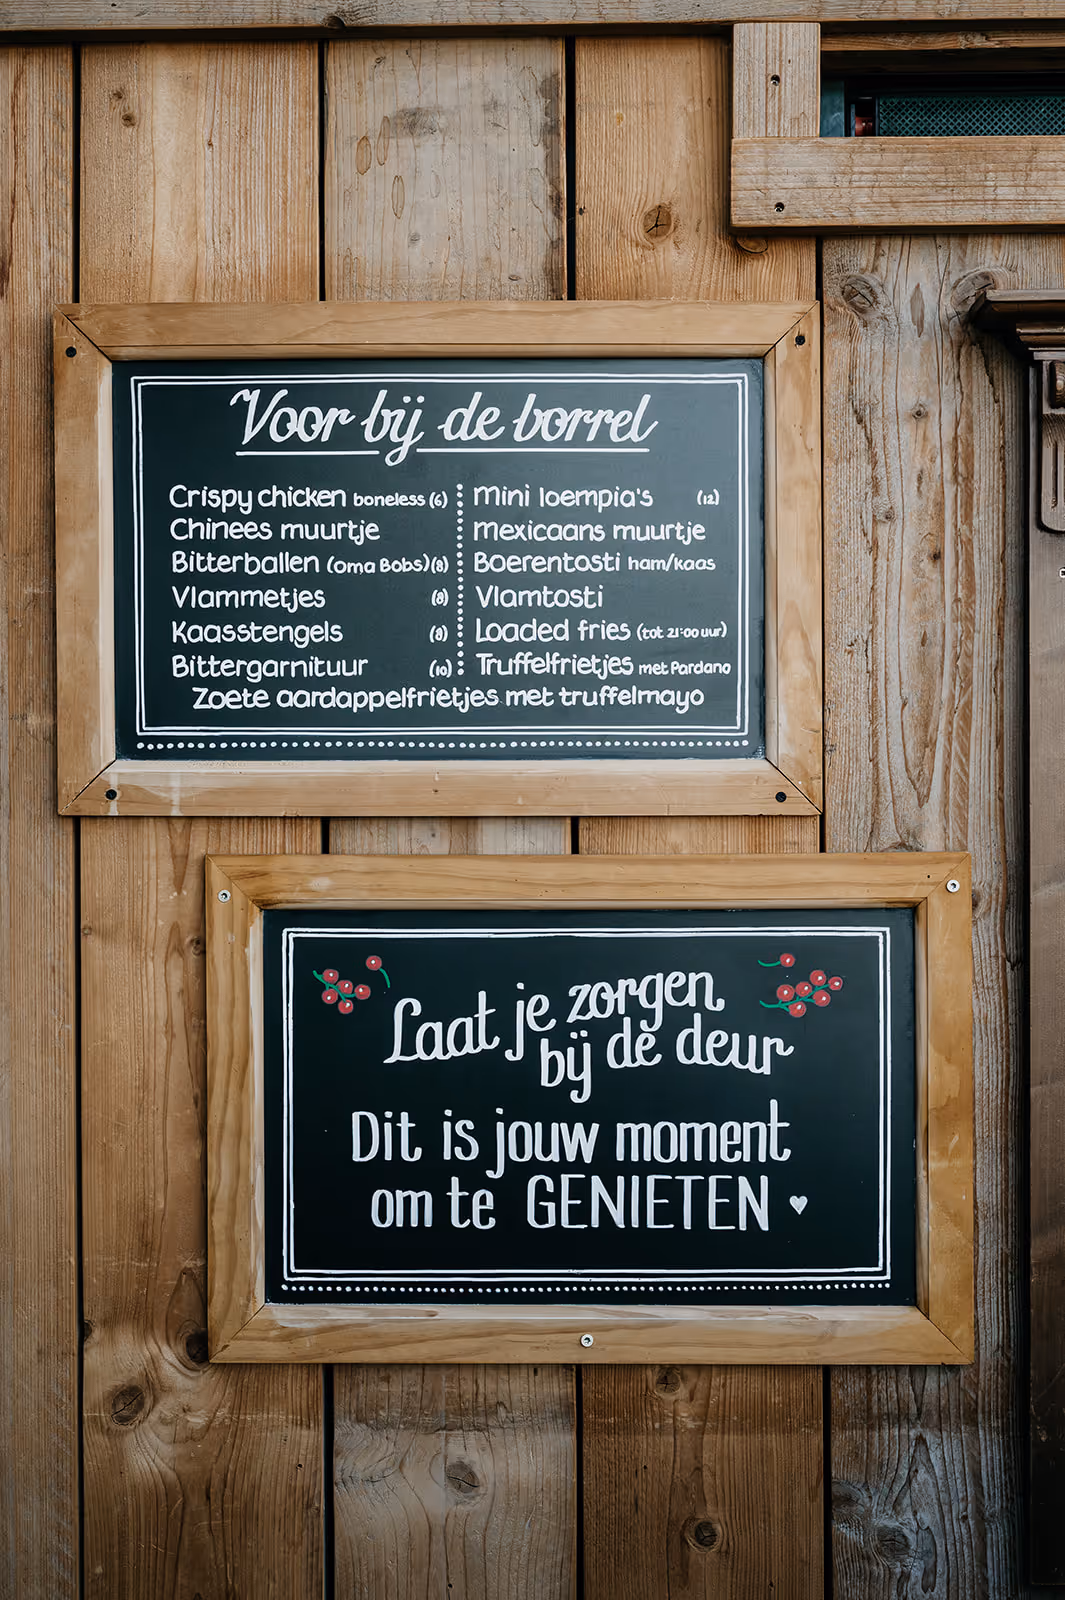 Voor bij de borrel
Crispy chicken boneless (6)
Chinees muurtje
Bitterballen (Oma Bobs) (8)
Vlammetjes (8)
Kaasstengels (8)
Bittergarnituur (10)
Mini loempia's (12)
Mexicaans muurtje
Boerentosti ham/kaas
Vlamtosti
Loaded fries (tot 21:00 uur)
Truffelfrietjes met Pardano
Zoete aardappelfrietjes met truffelmayo
Laat je zorgen
bij de deur
Dit is jouw moment
om te GENIETEN